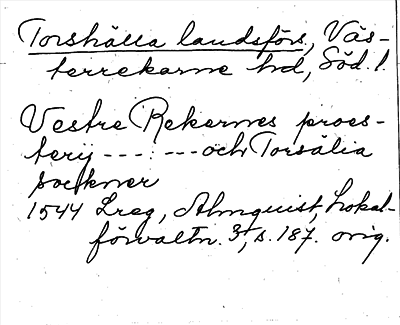 Torshälla landsförs, Väs-
terrekarne hd, Söd. l.
Vestre Rekernes proes-
terij --- --- och Torsälia
sockner
1544 Lreg, Almquist, Lokal-
förvaltn. 3, s. 187. orig.